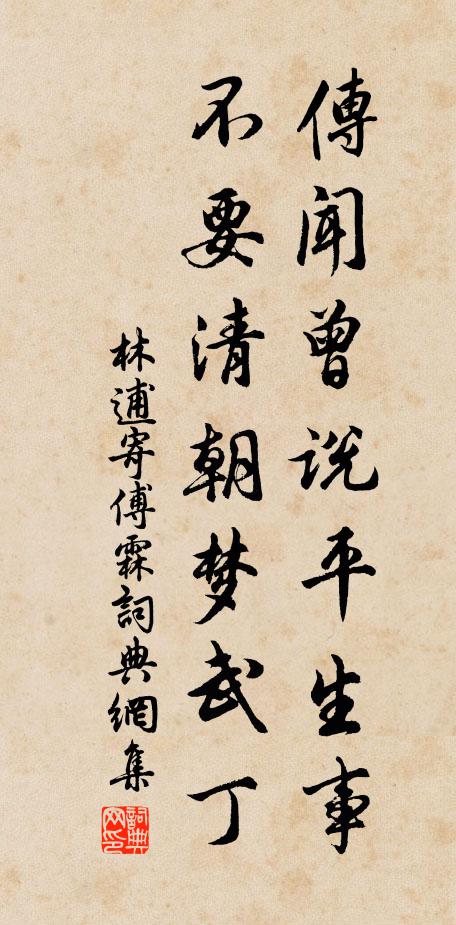 傳聞曾说平生事
不要清朝梦武丁
林逋寄傅霖詞典網集
詞典网印